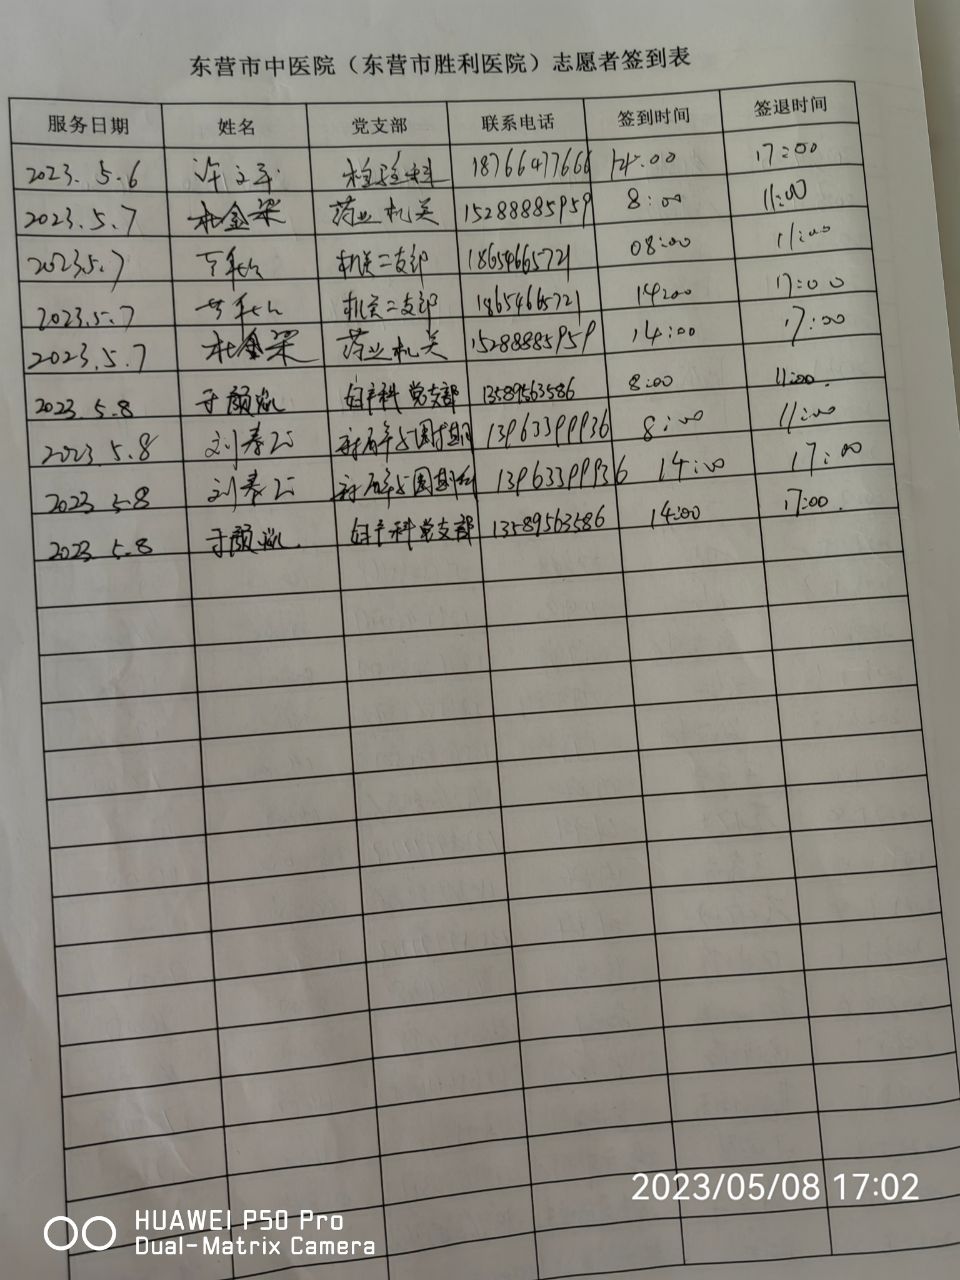 东营市中医院（东营市胜利医院）志愿者签到表
服务日期 姓名 党支部 联系电话 签到时间 签退时间
2023.5.6 检验科 18766477666 14:00 17:00
2023.5.7 杜金梁 药业机关 15288885959 8:00 11:00
2023.5.7 机关二支部 18654665721 08:00 11:00
2023.5.7 机关二支部 18654665721 14:00 17:00
2023.5.7 杜金梁 药业机关 15288885959 14:00 17:00
2023.5.8 于颜 妇产科党支部 13589563586 8:00 11:00.
2023.5.8 刘春 13963399936 8:00 11:00
2023.5.8 刘春 13963399936 14:00 17:00
2023.5.8 于颜 妇产科党支部 13589563586 14:00 17:00.
2023/05/08 17:02
HUAWEI P50 Pro
Dual-Matrix Camera